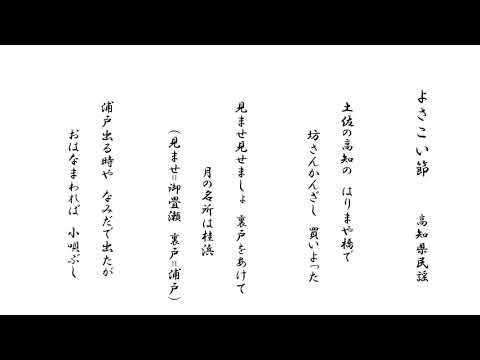 よさこい節　高知県民謡
土佐の高知の　はりまや橋で
坊さんかんざし　買いよった
見ませ見せましょ　裏戸をあけて
月の名所は桂浜
(見ませ=御畳瀬　裏戸=浦戸)
浦戸出る時や　なみだで出たが
おはなまわれば　小唄ぶし